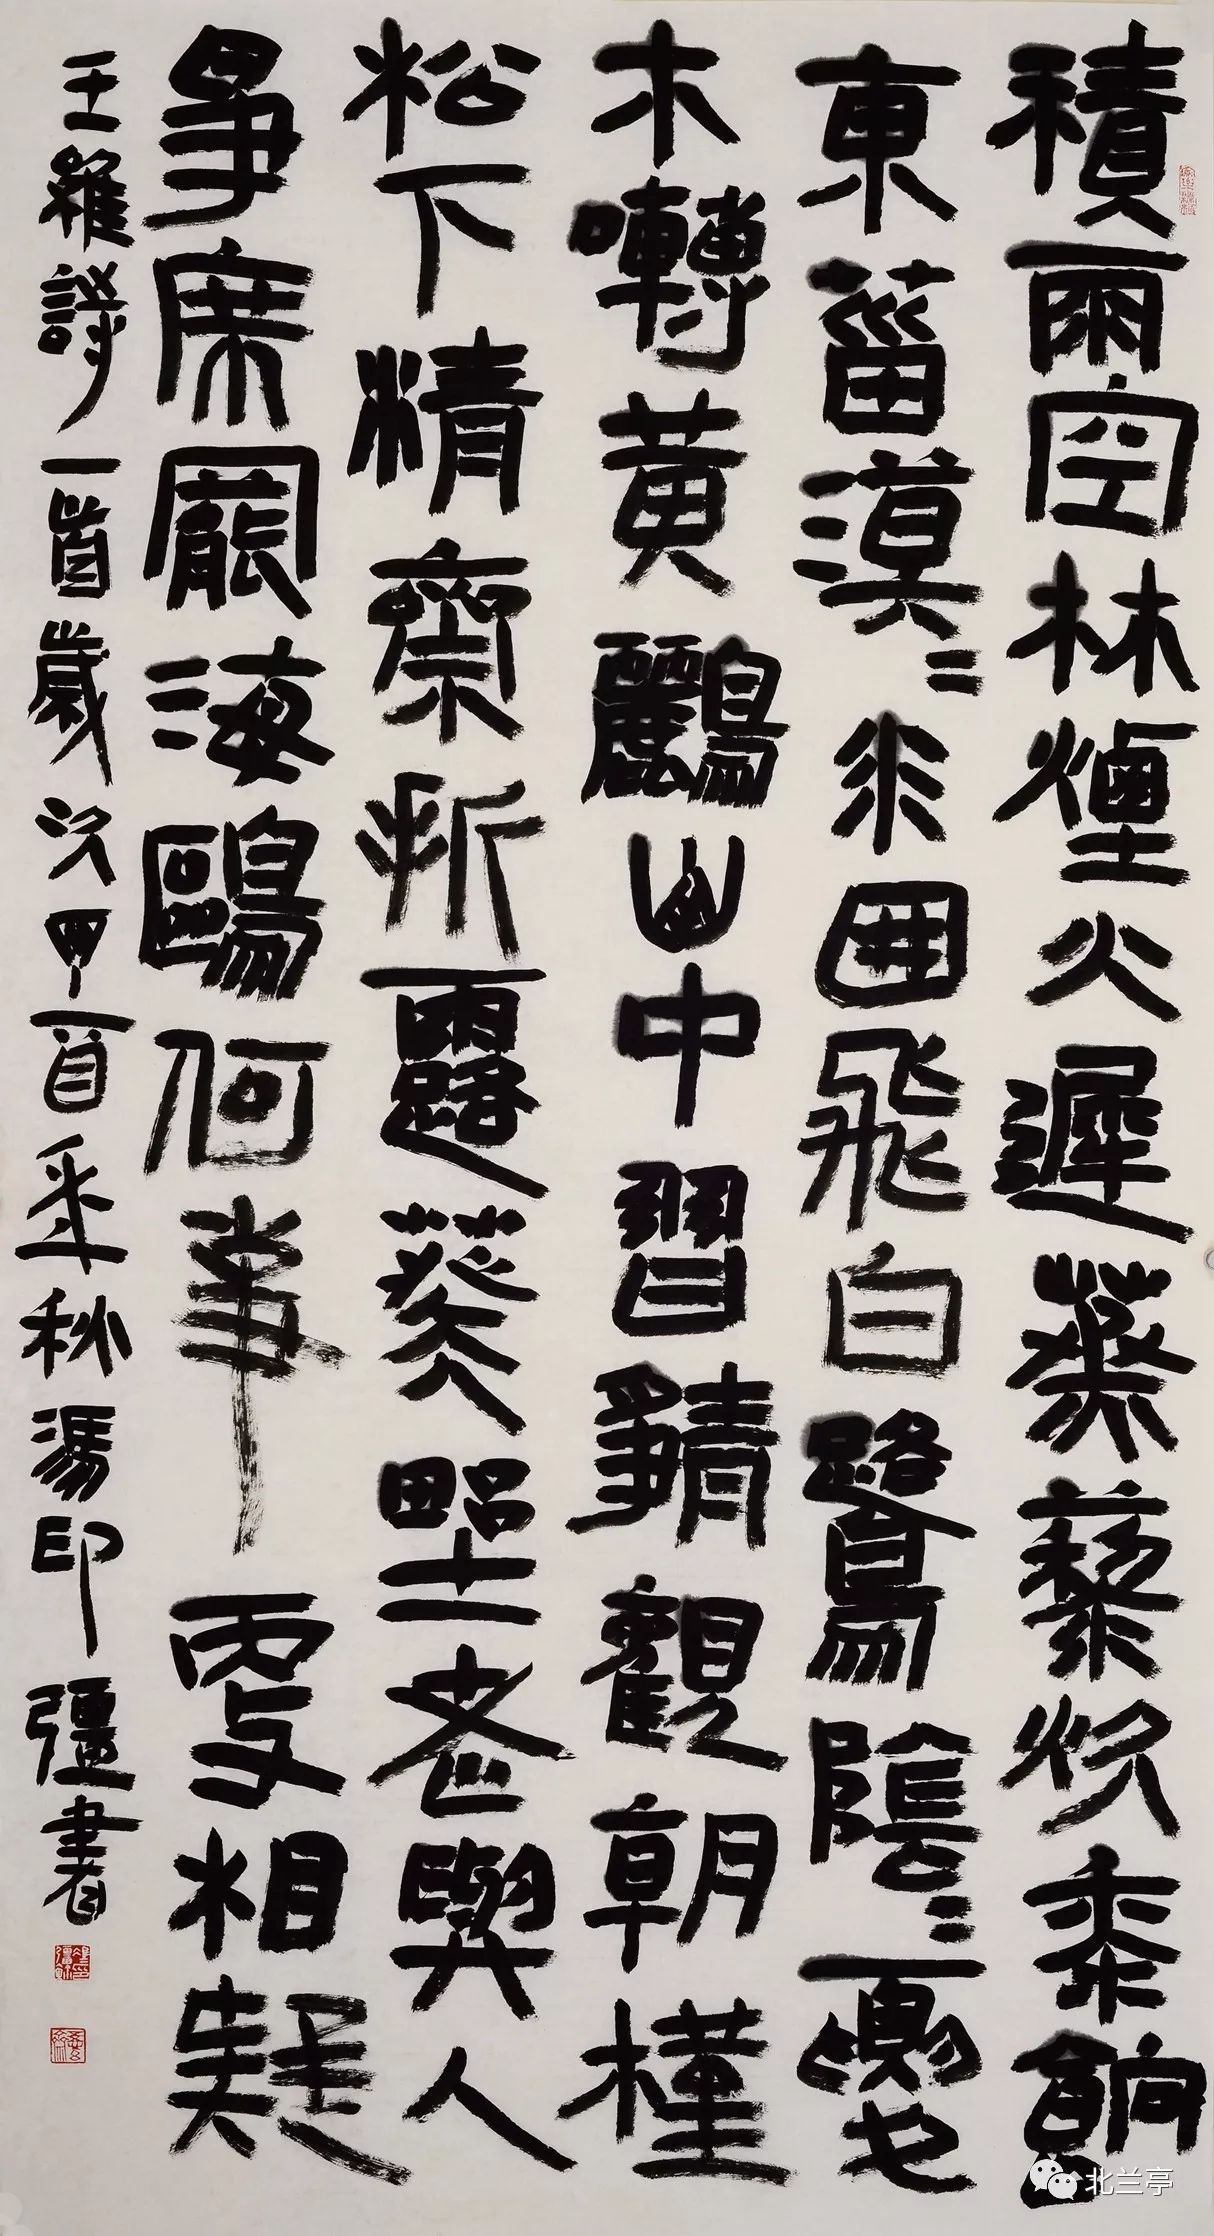 積雨空林煙火遲蒸藜炊黍餉
東菑漠〻水田飛白鷺陰〻夏
木囀黃鸝山中習靜觀朝槿
松下精齋折露葵野老與人
爭席罷海鷗何事更相疑
王維詩一首歲次甲年秋湯印彊書
北兰亭